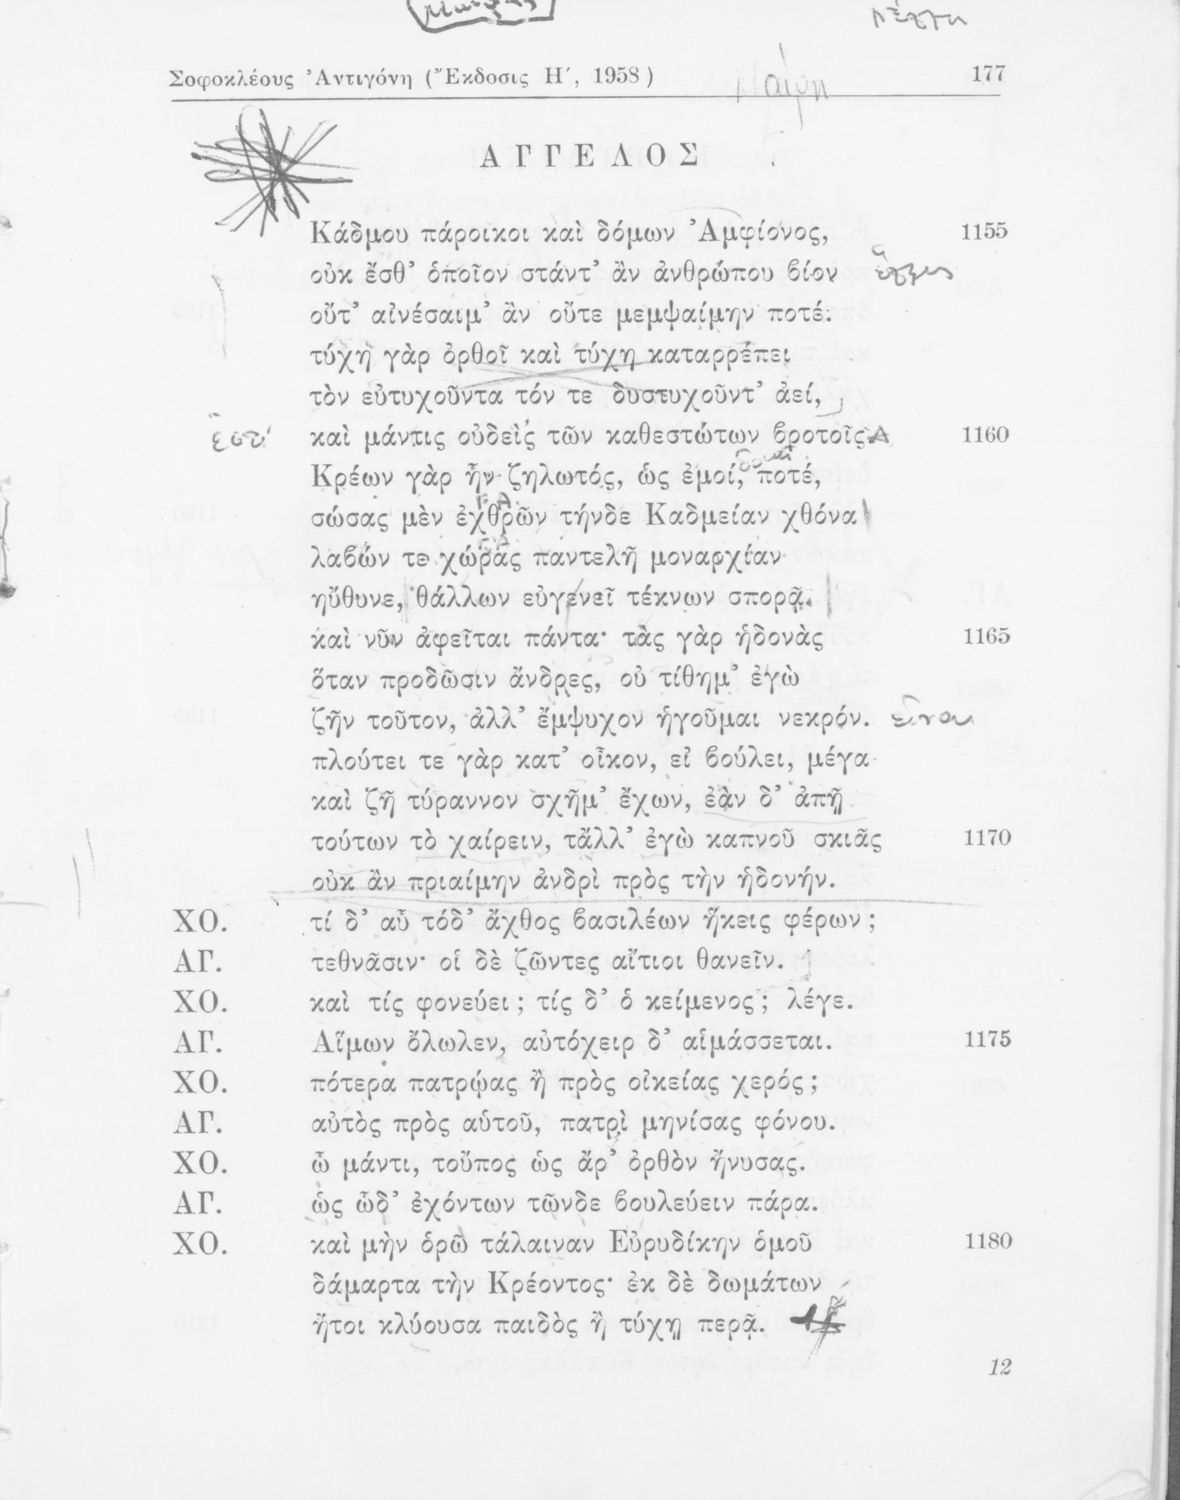 Σοφοκλέους Ἀντιγόνη (Ἔκδοσις Η΄, 1958) 177
Μαίρη
ΑΓΓΕΛΟΣ
Κάδμου πάροικοι καὶ δόμων Ἀμφίονος, 1155
οὐκ ἔσθ' ὁποῖον στάντ' ἂν ἀνθρώπου βίον
οὔτ' αἰνέσαιμ' ἂν οὔτε μεμψαίμην ποτέ:
τύχη γὰρ ὀρθοῖ καὶ τύχη καταρρέπει
τὸν εὐτυχοῦντα τόν τε δυστυχοῦντ' ἀεί,
ἐστί καὶ μάντις οὐδεὶς τῶν καθεστώτων βροτοῖς 1160
Κρέων γὰρ ἦν ζηλωτός, ὡς ἐμοί, ποτέ,
σώσας μὲν ἐχθρῶν τήνδε Καδμείαν χθόνα
λαβών τε χώρας παντελῆ μοναρχίαν
ηὔθυνε, θάλλων εὐγενεῖ τέκνων σπορᾷ.
καὶ νῦν ἀφεῖται πάντα· τὰς γὰρ ἡδονὰς 1165
ὅταν προδῶσιν ἄνδρες, οὐ τίθημ' ἐγὼ
ζῆν τοῦτον, ἀλλ' ἔμψυχον ἡγοῦμαι νεκρόν. εἶναι
πλούτει τε γὰρ κατ' οἶκον, εἰ βούλει, μέγα
καὶ ζῆ τύραννον σχῆμ' ἔχων, ἐὰν δ' ἀπῇ
τούτων τὸ χαίρειν, τἄλλ' ἐγὼ καπνοῦ σκιᾶς 1170
οὐκ ἂν πριαίμην ἀνδρὶ πρὸς τὴν ἡδονήν.
ΧΟ. τί δ' αὖ τόδ' ἄχθος βασιλέων ἥκεις φέρων;
ΑΓ. τεθνᾶσιν· οἱ δὲ ζῶντες αἴτιοι θανεῖν.
ΧΟ. καὶ τίς φονεύει; τίς δ' ὁ κείμενος; λέγε.
ΑΓ. Αἵμων ὄλωλεν, αὐτόχειρ δ' αἱμάσσεται. 1175
ΧΟ. πότερα πατρῴας ἢ πρὸς οἰκείας χερός;
ΑΓ. αὐτὸς πρὸς αὑτοῦ, πατρὶ μηνίσας φόνου.
ΧΟ. ὦ μάντι, τοὔπος ὡς ἄρ' ὀρθὸν ἤνυσας.
ΑΓ. ὡς ὧδ' ἐχόντων τῶνδε βουλεύειν πάρα.
ΧΟ. καὶ μὴν ὁρῶ τάλαιναν Εὐρυδίκην ὁμοῦ 1180
δάμαρτα τὴν Κρέοντος· ἐκ δὲ δωμάτων
ἤτοι κλύουσα παιδὸς ἢ τύχῃ περᾷ.
12